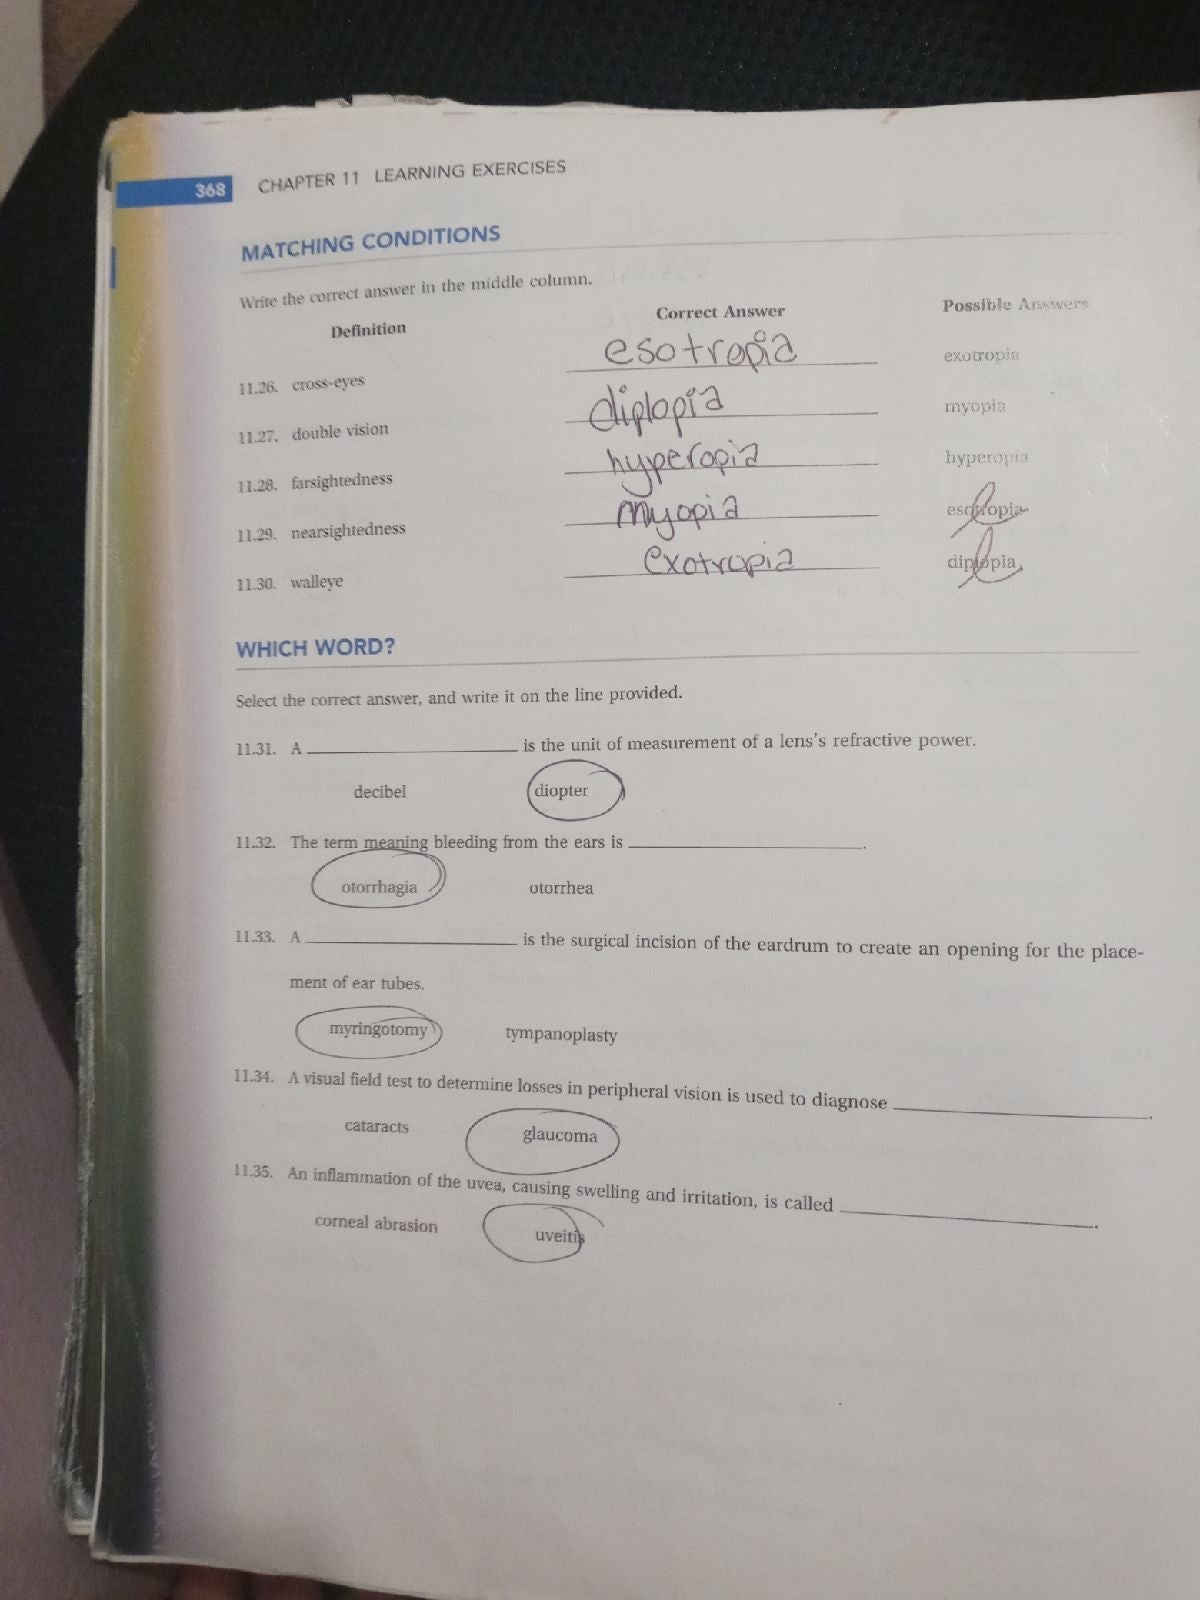 368 CHAPTER 11 LEARNING EXERCISES
MATCHING CONDITIONS
Write the correct answer in the middle column.
Definition Correct Answer Possible Answers
11.26. cross-eyes esotropia exotropia
11.27. double vision diplopia myopia
11.28. farsightedness hyperopia hyperopia
11.29. nearsightedness myopia esotropia
11.30. walleye exotropia diplopia
WHICH WORD?
Select the correct answer, and write it on the line provided.
11.31. A ____________ is the unit of measurement of a lens's refractive power.
decibel diopter
11.32. The term meaning bleeding from the ears is ____________.
otorrhagia otorrhea
11.33. A ____________ is the surgical incision of the eardrum to create an opening for the place-
ment of ear tubes.
myringotomy tympanoplasty
11.34. A visual field test to determine losses in peripheral vision is used to diagnose ____________.
cataracts glaucoma
11.35. An inflammation of the uvea, causing swelling and irritation, is called ____________.
corneal abrasion uveitis